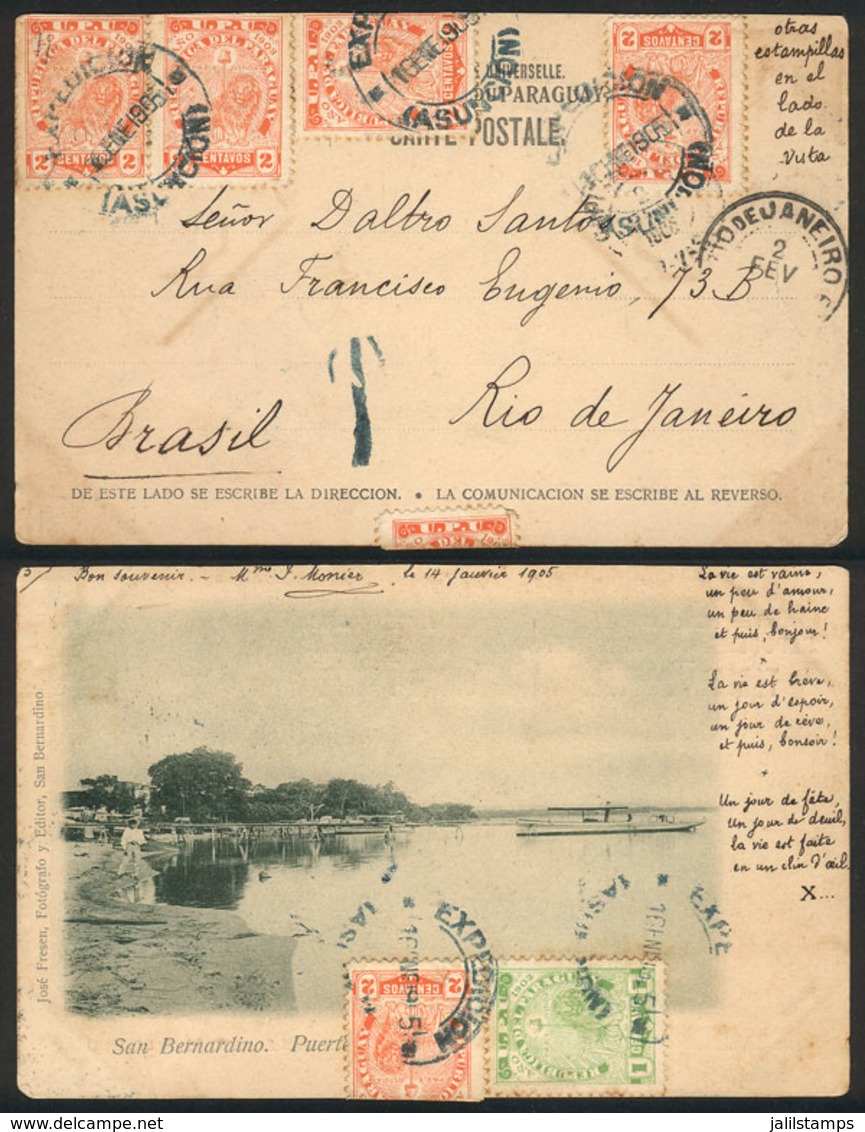 U.P.U.
AÑO 1903
REPUBLICA DEL PARAGUAY
2 CENTAVOS 2
EXPEDICION
16 ENE 1905
(ASUNCION)
UNIVERSELLE.
PARAGUAY
CARTE POSTALE.
otras
estampillas
en el
lado
de la
vista
Señor Daltro Santos
Rua Francisco Eugenio, 73 B
RIO DE JANEIRO
2
FEV
T
Rio de Janeiro
Brasil
DE ESTE LADO SE ESCRIBE LA DIRECCION. • LA COMUNICACION SE ESCRIBE AL REVERSO.
U.P.U.
Bon souvenir. - Mme J. Monier le 14 Janvier 1905
La vie est vaine,
un peu d'amour,
un peu de haine
et puis, bonjour!
x
La vie est brève,
un jour d'espoir,
un jour de rêve,
et puis, bonsoir!
x
Un jour de fête,
Un jour de deuil,
la vie est faite
en un clin d'œil.
X...
José Fresen, Fotógrafo y Editor, San Bernardino
EXPEDICION
(ASUNCION)
San Bernardino. Puert
2 CENTAVOS 2
1
jalilstamps